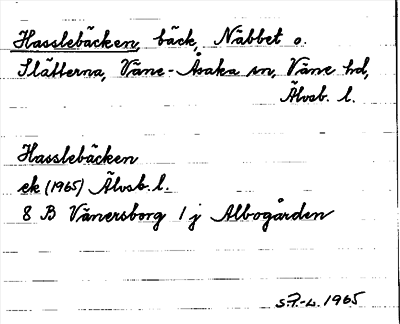 Hasslebäcken, bäck, Näbbet o.
Slätterna, Väne-Åsaka sn, Väne hd,
Älvsb. l.
Hasslebäcken
ek (1965) Älvsb. l.
8 B Vänersborg 1 j Albogården
1965